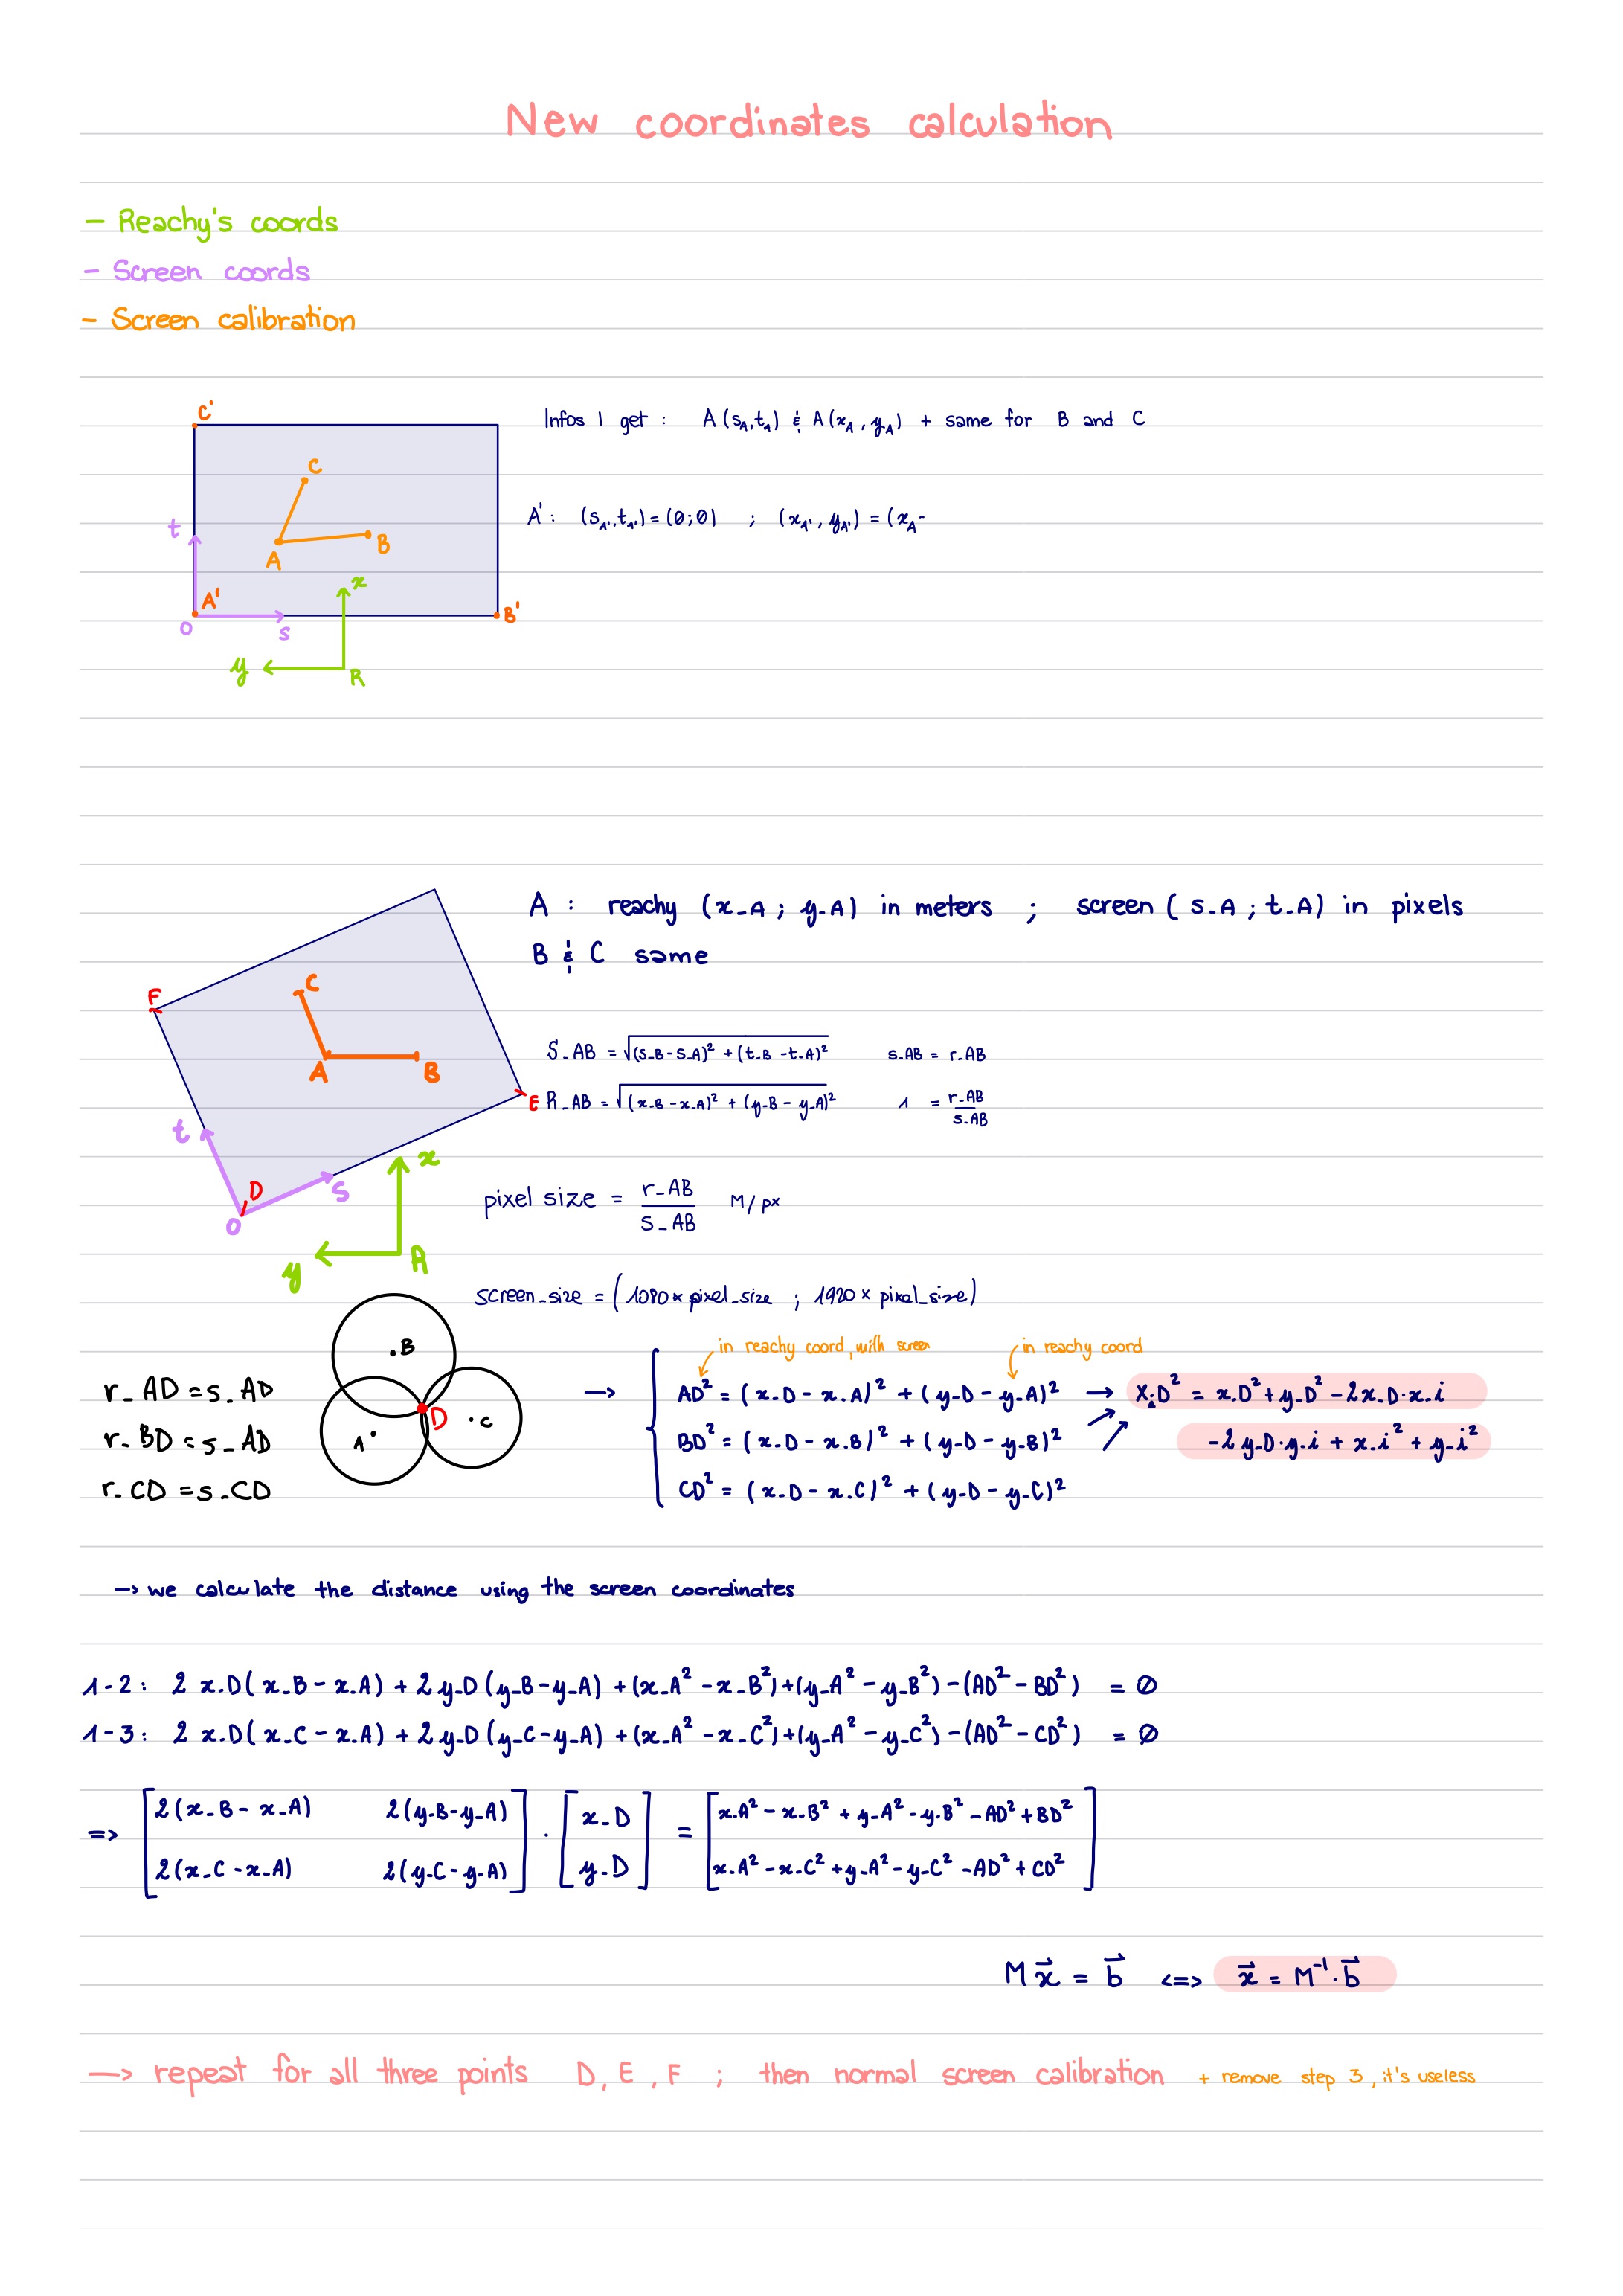 New coordinates calculation
- Reachy's coords
- Screen coords
- Screen calibration
C'
Infos I get : A (s_A, t_A) & A (x_A, y_A) + same for B and C
C
t
A' : (s_A', t_A') = (0;0) ; (x_A', y_A') = (x_A -
B
A
x
A'
B'
O
s
y
R
A : reachy (x_A ; y_A) in meters ; screen (s_A ; t_A) in pixels
B & C same
F
C
A
B
S_AB = √(s_B - s_A)² + (t_B - t_A)² s_AB = r_AB
E
R_AB = √(x_B - x_A)² + (y_B - y_A)² 1 = r_AB / s_AB
t
x
D
s
O
pixel size = r_AB / s_AB M/px
y
R
screen_size = (1080 × pixel_size ; 1920 × pixel_size)
B
in reachy coord, with screen
in reachy coord
r_AD = s_AD
D
C
A
→ AD² = (x_D - x_A)² + (y_D - y_A)² → X_iD² = x_D² + y_D² - 2x_D·x_i
r_BD = s_AD
BD² = (x_D - x_B)² + (y_D - y_B)² - 2y_D·y_i + x_i² + y_i²
r_CD = s_CD
CD² = (x_D - x_C)² + (y_D - y_C)²
→ we calculate the distance using the screen coordinates
1-2: 2 x_D(x_B - x_A) + 2 y_D(y_B - y_A) + (x_A² - x_B²) + (y_A² - y_B²) - (AD² - BD²) = 0
1-3: 2 x_D(x_C - x_A) + 2 y_D(y_C - y_A) + (x_A² - x_C²) + (y_A² - y_C²) - (AD² - CD²) = 0
=> [2(x_B - x_A) 2(y_B - y_A)] · [x_D] = [x_A² - x_B² + y_A² - y_B² - AD² + BD²]
[2(x_C - x_A) 2(y_C - y_A)] [y_D] [x_A² - x_C² + y_A² - y_C² - AD² + CD²]
M x⃗ = b⃗ <=> x⃗ = M⁻¹·b⃗
→ repeat for all three points D, E, F ; then normal screen calibration + remove step 3, it's useless